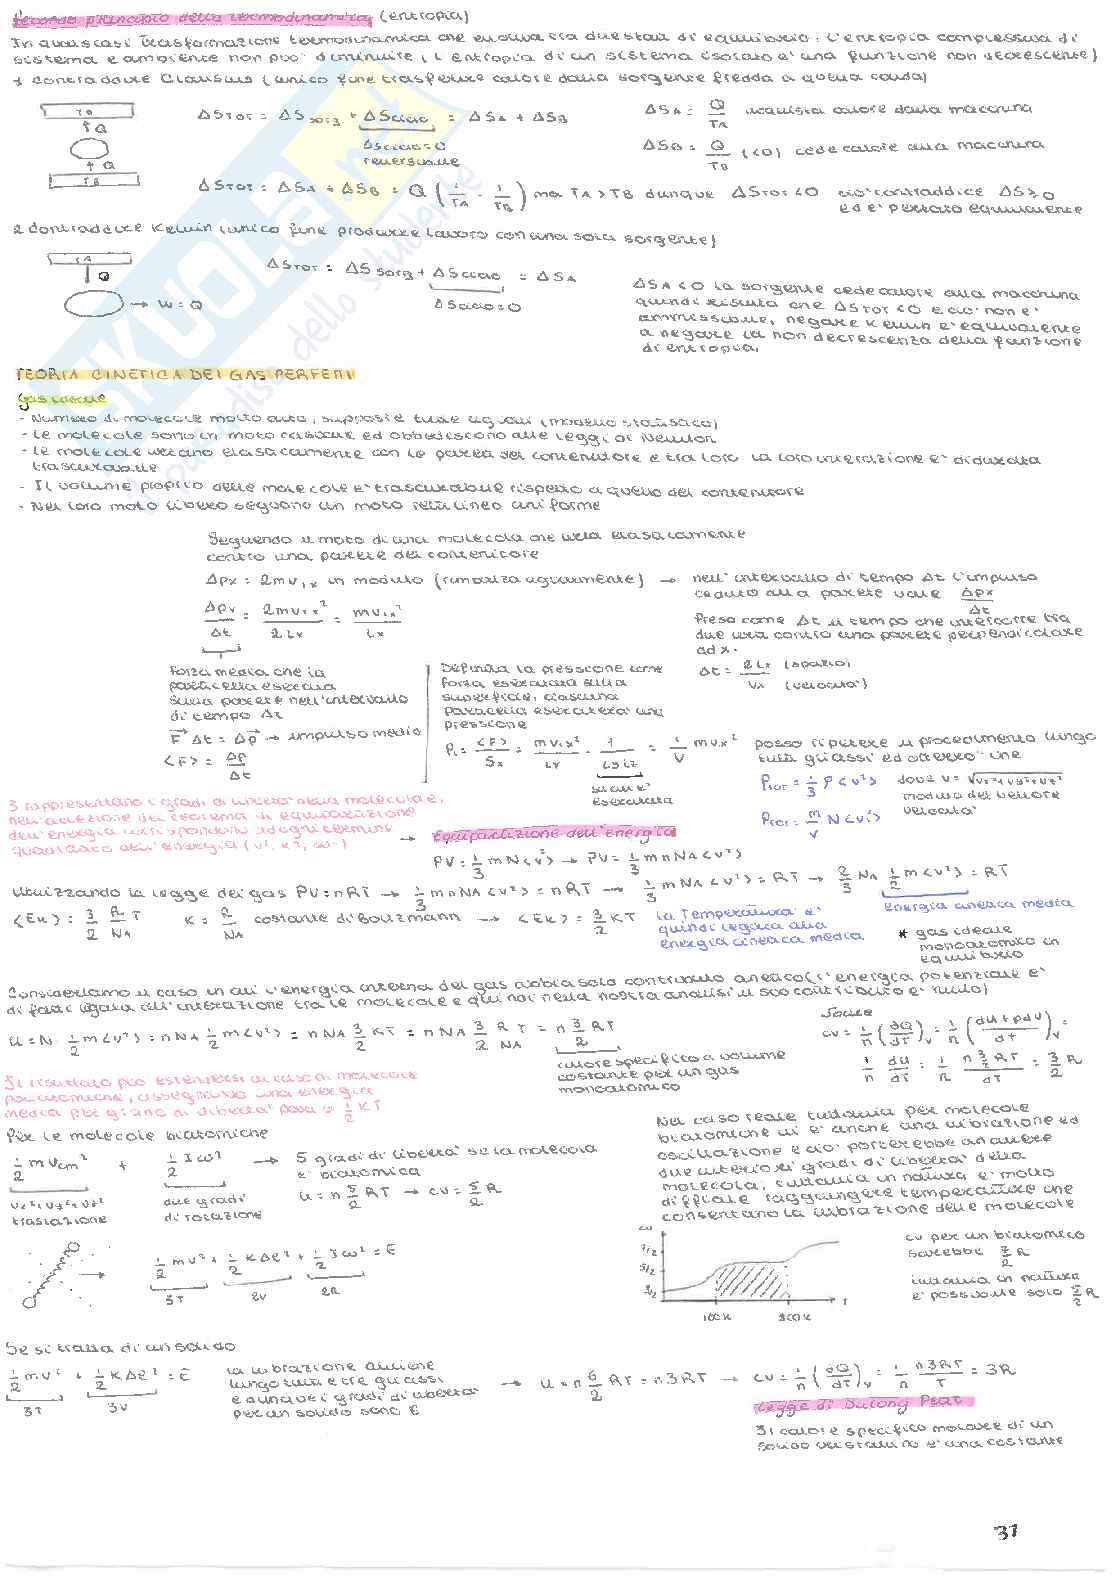 Secondo principio della termodinamica (entropia)
In qualsiasi trasformazione termodinamica che evolva tra due stati di equilibrio, l'entropia complessiva di
sistema e ambiente non può diminuire (l'entropia di un sistema isolato è una funzione non decrescente)
1 contraddire Clausius (unico fine trasferire calore dalla sorgente fredda a quella calda)
TA
↑Q
↑Q
TB
ΔSTOT = ΔSsorg + ΔSciclo = ΔSA + ΔSB
ΔSciclo=0
reversibile
ΔSA = Q/TA acquista calore dalla macchina
ΔSB = Q/TB (<0) cede calore alla macchina
ΔSTOT = ΔSA + ΔSB = Q (1/TA - 1/TB) ma TA > TB dunque ΔSTOT<0 ciò contraddice ΔS≥0
ed è pertanto equivalente
2 Contraddire Kelvin (unico fine produrre lavoro con una sola sorgente)
TA
Q
→ W=Q
ΔSTOT = ΔSsorg + ΔSciclo = ΔSA
ΔSciclo=0
ΔSA<0 la sorgente cede calore alla macchina
quindi risulta che ΔSTOT<0 e ciò non è
ammissibile, negare Kelvin è equivalente
a negare la non decrescenza della funzione
di entropia.
TEORIA CINETICA DEI GAS PERFETTI
Gas ideale
- Numero di molecole molto alto, supposte tutte uguali (modello statistico)
- Le molecole sono in moto casuale ed obbediscono alle leggi di Newton
- Le molecole urtano elasticamente con le pareti del contenitore e tra loro la loro interazione è di durata
trascurabile
- Il volume proprio delle molecole è trascurabile rispetto a quello del contenitore
- Nel loro moto libero seguono un moto rettilineo uniforme
Seguendo il moto di una molecola che urta elasticamente
contro una parete del contenitore
Δpx = 2mv1x in modulo (rimbalza ugualmente) → nell'intervallo di tempo Δt l'impulso
ceduto alla parete vale Δpx/Δt
Δpx/Δt = 2mv1x²/2Lx = mv1x²/Lx
Preso come Δt il tempo che intercorre tra
due urti contro una parete perpendicolare
ad x.
Δt = 2Lx/vx (spazio) (velocità)
Forza media che la
particella esercita
sulla parete nell'intervallo
di tempo Δt
F⃗ Δt = Δp⃗ → impulso medio
<F> = Δp/Δt
Definita la pressione come
forza esercitata sulla
superficie, ciascuna
particella eserciterà una
pressione
Pi = <F>/Sx = mv1x²/Lx · 1/LyLz = 1/V mvix²
su cui è
esercitata
posso ripetere il procedimento lungo
tutti gli assi ed ottengo che
PTOT = 1/3 ρ <v²> dove v = √vx²+vy²+vz²
modulo del vettore
velocità
PTOT = m/V N <v²>
3 rappresentano i gradi di libertà della molecola e,
nell'accezione del teorema di equipartizione
dell'energia corrispondono ad ogni termine
quadratico dell'energia (v², x², ω²)
→ Equipartizione dell'energia
PV = 1/3 mN<v²> → PV = 1/3 mnNA<v²>
Utilizzando la legge dei gas PV=nRT → 1/3 mnNA <v²> = nRT → 1/3 mNA <v²> = RT → 2/3 NA 1/2 m<v²> = RT
energia cinetica media
<Ek> = 3/2 R/NA T K = R/NA costante di Boltzmann → <Ek> = 3/2 KT
la Temperatura è
quindi legata alla
energia cinetica media.
* gas ideale
monoatomico in
equilibrio
Consideriamo il caso in cui l'energia interna del gas abbia solo contributo cinetico (l'energia potenziale è
di fatto legata all'interazione tra le molecole e quindi nella nostra analisi il suo contributo è nullo)
U = N 1/2 m<v²> = nNA 1/2 m<v²> = nNA 3/2 KT = nNA 3/2 R/NA T = n 3/2 RT
calore specifico a volume
costante per un gas
monoatomico
cv = 1/n (dQ/dT)v = 1/n (dU+pdV/dT)v =
1/n dU/dT = 1/n n3/2RT/dT = 3/2 R
Il risultato può estendersi al caso di molecole
poliatomiche, assegnando una energia
media per grado di libertà pari a 1/2 KT
Per le molecole biatomiche
1/2 mvcm² + 1/2 Iω² → 5 gradi di libertà se la molecola
è biatomica
U = n 5/2 RT → cv = 5/2 R
vx²+vy²+vz²
traslazione
due gradi
di rotazione
Nel caso reale tuttavia per molecole
biatomiche vi è anche una vibrazione ed
oscillazione e ciò porterebbe ad avere
due ulteriori gradi di libertà della
molecola, tuttavia in natura è molto
difficile raggiungere temperature che
consentano la vibrazione delle molecole
1/2 mv² + 1/2 KΔl² + 1/2 Iω² = E
3T 2V 2R
cv
7/2
5/2
3/2
100K 300K T
cv per un biatomico
sarebbe 7/2 R
tuttavia in natura
è possibile solo 5/2 R
Se si tratta di un solido
1/2 mv² + 1/2 KΔl² = E
3T 3V
la vibrazione avviene
lungo tutti e tre gli assi
e dunque i gradi di libertà
per un solido sono 6
→ U = n 6/2 RT = n3RT → cv = 1/n (dQ/dT)v = 1/n n3RT/T = 3R
Legge di Dulong Petit
Il calore specifico molare di un
solido cristallino è una costante
31
SKUOLA.net
il paradiso dello studente